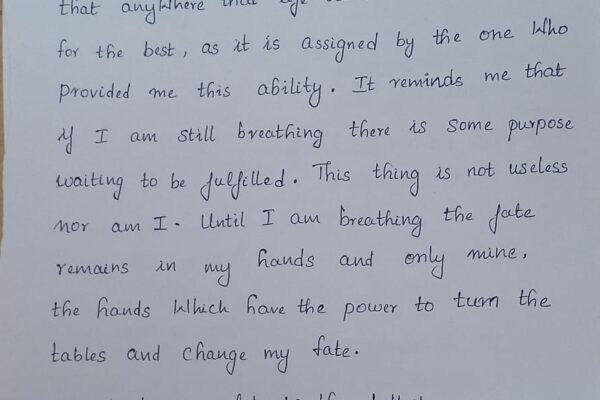 that anywhere
for the best, as it is assigned by the one who
provided me this ability. It reminds me that
if I am still breathing there is some purpose
waiting to be fulfilled. This thing is not useless
nor am I. Until I am breathing the fate
remains in my hands and only mine,
the hands which have the power to turn the
tables and change my fate.